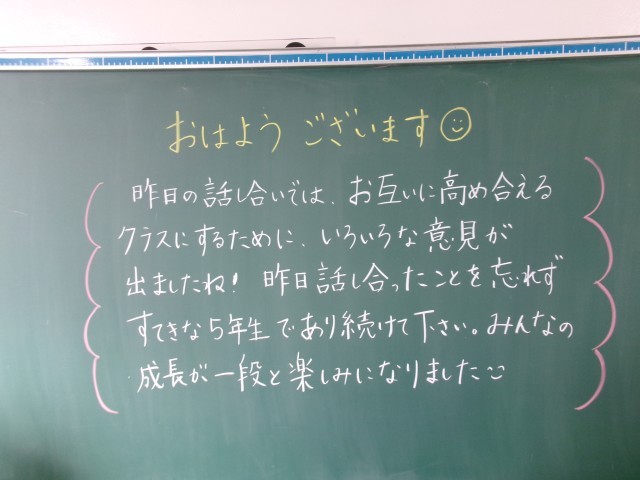 おはようございます☺
昨日の話し合いでは、お互いに高め合える
クラスにするために、いろいろな意見が
出ましたね!昨日話し合ったことを忘れず
すてきな5年生であり続けて下さい。みんなの
成長が一段と楽しみになりました